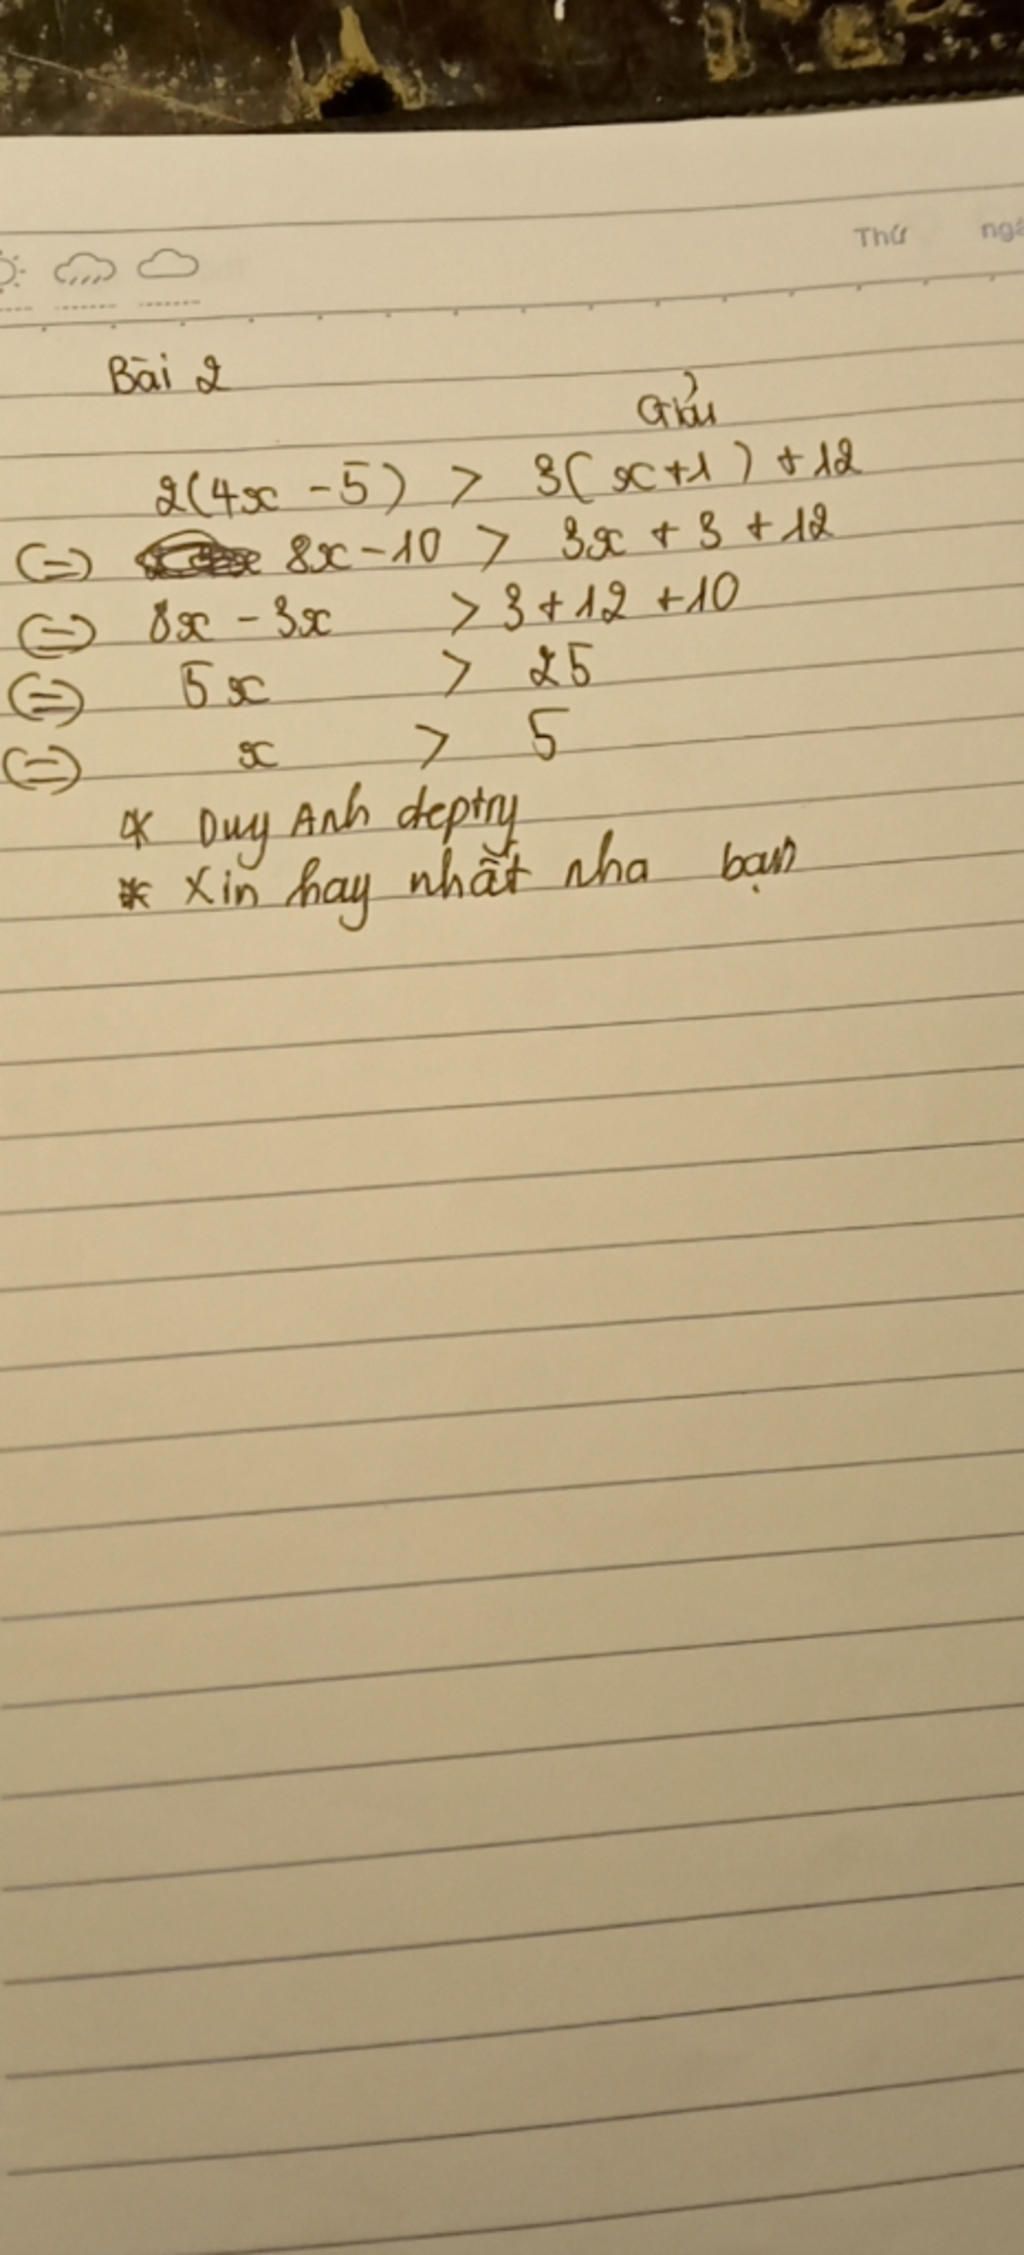 Thứ ngà
Bài 2
Giải
2(4x - 5) > 3(x+1) + 12
(=) 8x - 10 > 3x + 3 + 12
(=) 8x - 3x > 3 + 12 + 10
(=) 5x > 25
(=) x > 5
* Duy Anh deptry
* Xin hay nhất nha bạn